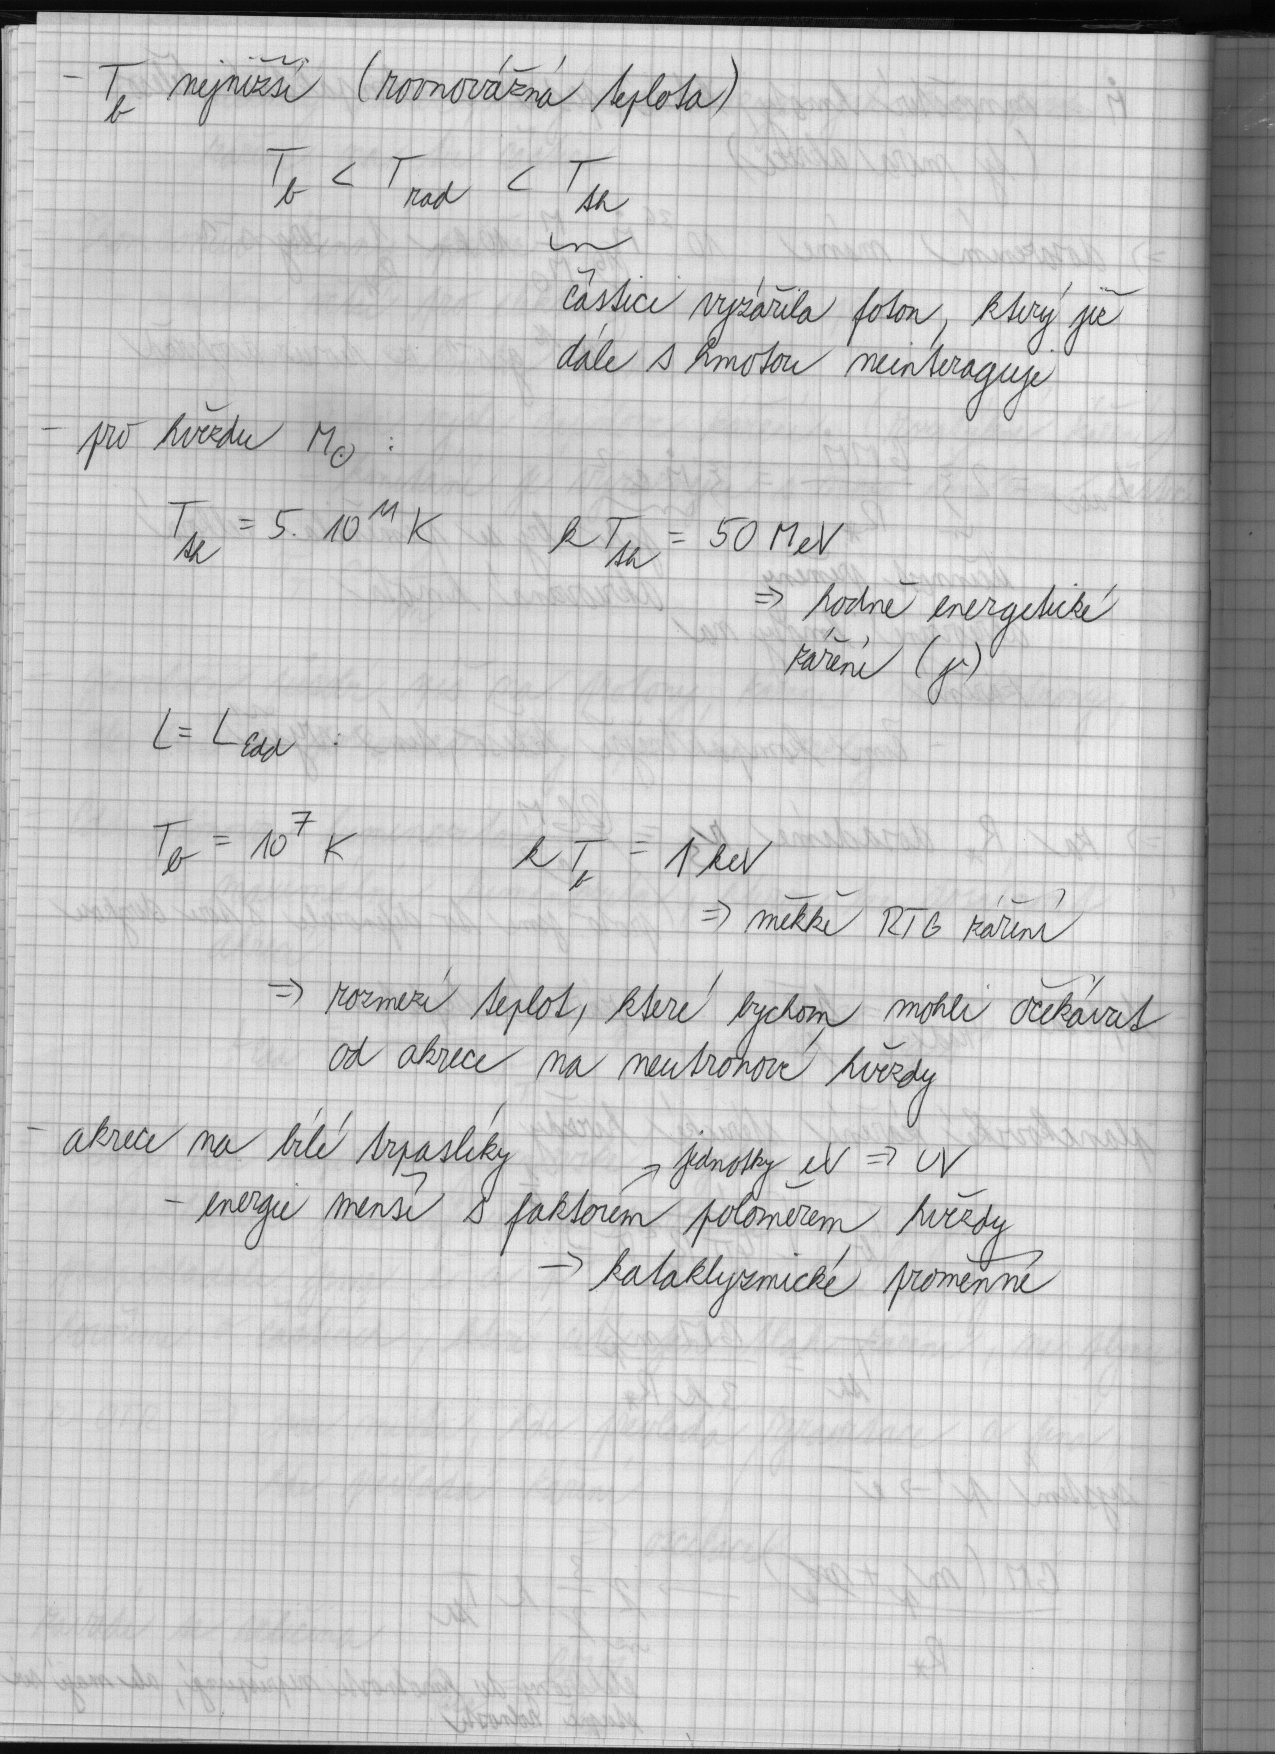 - T_b nejnižší (rovnovážná teplota)
T_b < T_rad < T_th
částice vyzářila foton, který již
dále s hmotou neinteraguje
- pro hvězdu M_⊙ :
T_th = 5 · 10^11 K k T_th = 50 MeV
⇒ hodně energetické
záření (γ)
L = L_Edd :
T_b = 10^7 K k T_b = 1 keV
⇒ měkké RTG záření
⇒ rozmezí teplot, které bychom mohli očekávat
od akrece na neutronové hvězdy
- akrece na bílé trpaslíky
→ jednotky eV ⇒ UV
- energie menší s faktorem poloměrem hvězdy
→ kataklyzmické proměnné